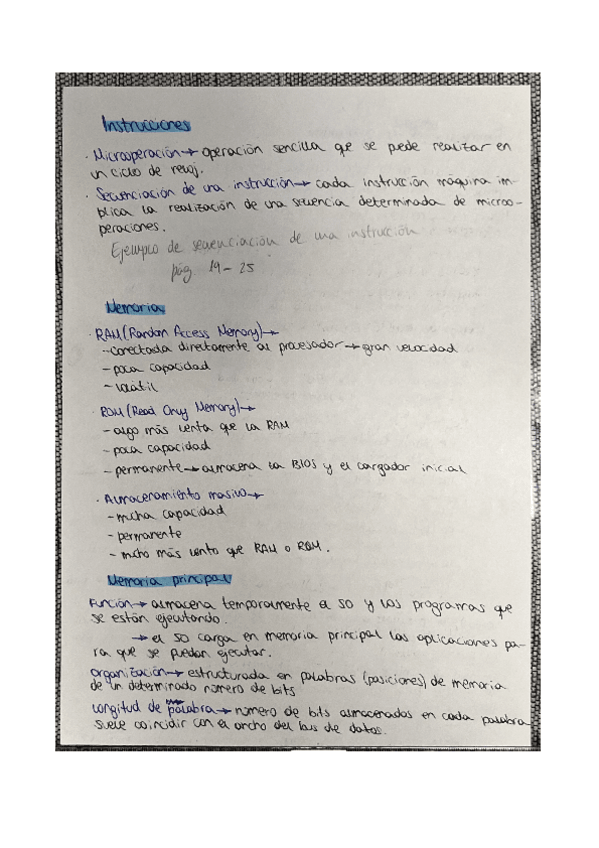 Instrucciones
· Microoperación → operación sencilla que se puede realizar en
un ciclo de reloj.
· Secuenciación de una instrucción → cada instrucción máquina im-
plica la realización de una secuencia determinada de microo-
peraciones.
Ejemplo de secuenciación de una instrucción
pág. 19-25
Memoria
· RAM (Random Access Memory) →
- conectada directamente al procesador → gran velocidad
- poca capacidad
- volátil
· ROM (Read Only Memory) →
- algo más lenta que la RAM
- poca capacidad
- permanente → almacena la BIOS y el cargador inicial
· Almacenamiento masivo →
- mucha capacidad
- permanente
- mucho más lento que RAM o ROM.
Memoria principal
Función → almacena temporalmente el SO y los programas que
se están ejecutando.
→ el SO carga en memoria principal las aplicaciones pa-
ra que se puedan ejecutar.
Organización → estructurada en palabras (posiciones) de memoria
de un determinado número de bits
Longitud de palabra → número de bits almacenados en cada palabra
suele coincidir con el ancho del bus de datos.